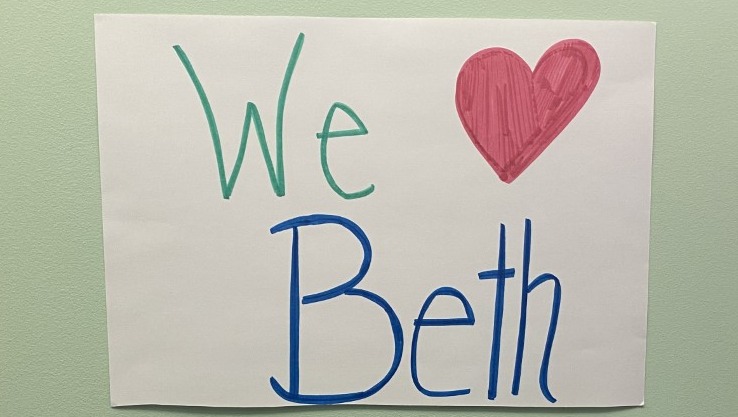 We ❤
Beth